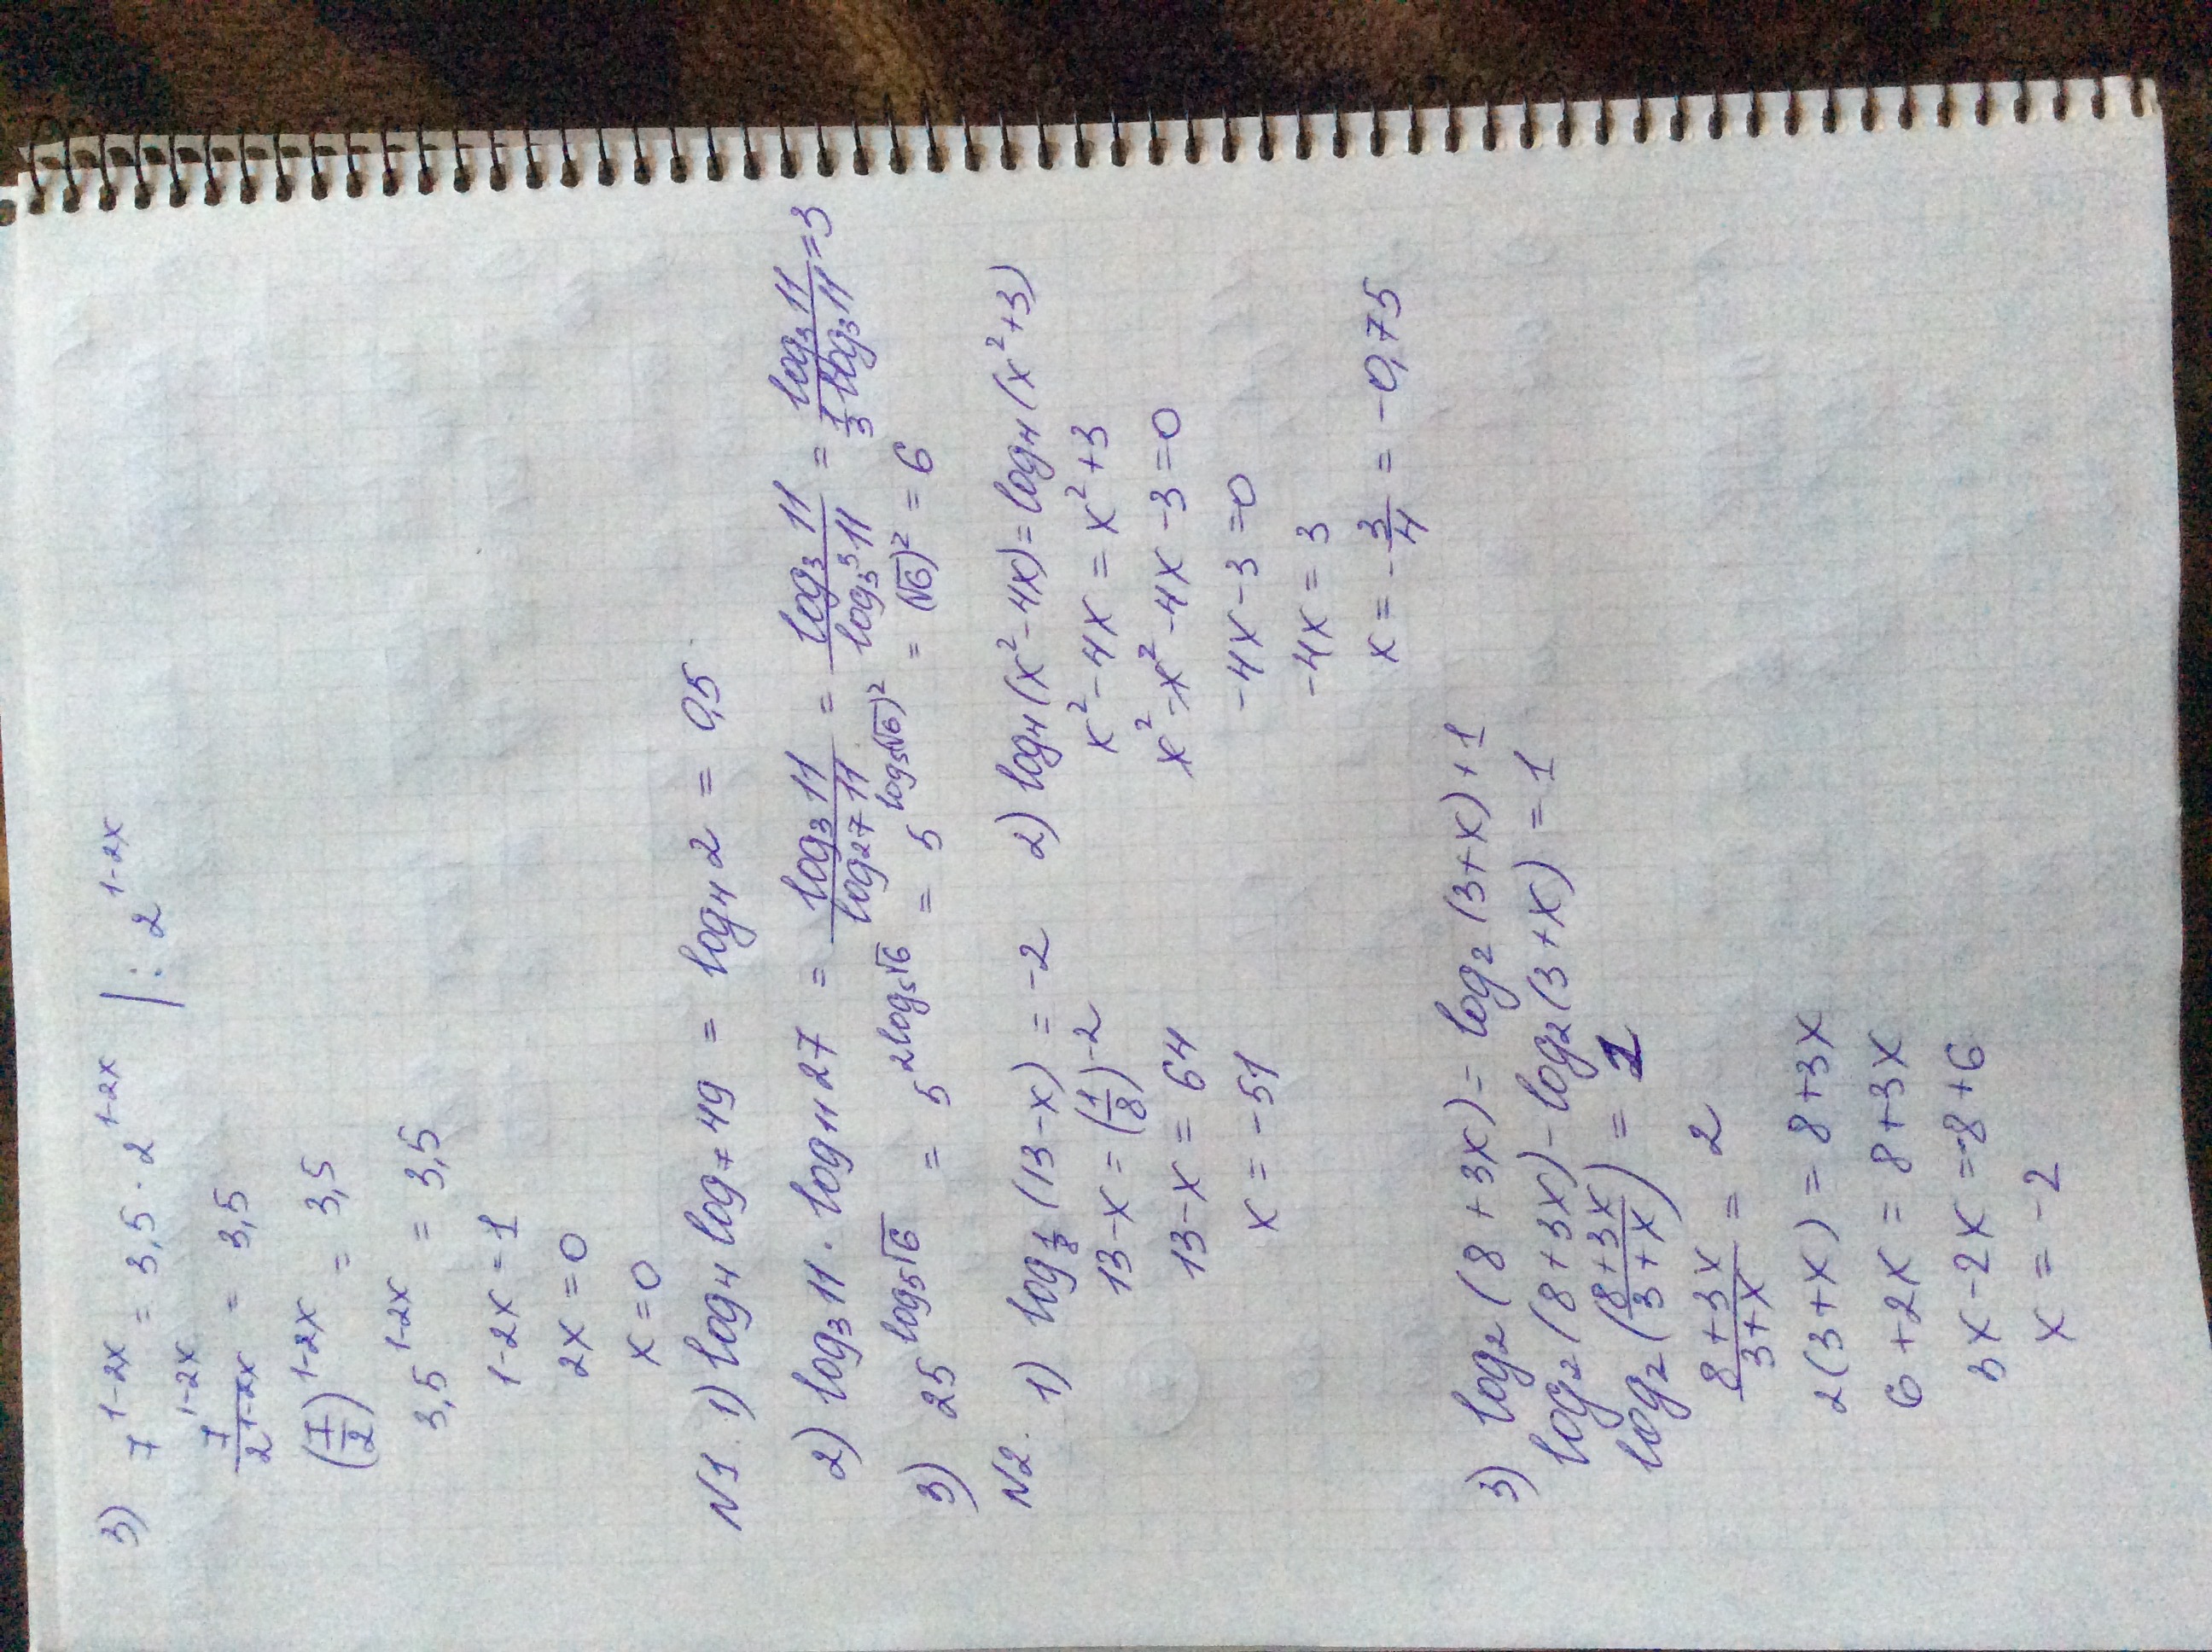 3) 7^(1-2x) = 3,5 · 2^(1-2x) | : 2^(1-2x)
7^(1-2x)/2^(1-2x) = 3,5
(7/2)^(1-2x) = 3,5
3,5^(1-2x) = 3,5
1-2x=1
2x=0
x=0
N1. 1) log₄ log₇ 49 = log₄ 2 = 0,5
2) log₃ 11 · log₁₁ 27 = log₃ 11/log₂₇ 11 = log₃ 11/log₃³ 11 = log₃ 11/(1/3 log₃ 11) = 3
3) 25^(log₅√6) = 5^(2log₅√6) = 5^(log₅(√6)²) = (√6)² = 6
N2. 1) log_(1/8) (13-x) = -2
13-x = (1/8)^(-2)
13-x = 64
x = -51
2) log₄(x²-4x) = log₄(x²+3)
x²-4x = x²+3
x²-x²-4x-3=0
-4x-3=0
-4x=3
x=-3/4 = -0,75
3) log₂(8+3x) = log₂(3+x)+1
log₂(8+3x) - log₂(3+x) = 1
log₂((8+3x)/(3+x)) = 1
(8+3x)/(3+x) = 2
2(3+x) = 8+3x
6+2x = 8+3x
3x-2x=-8+6
x=-2